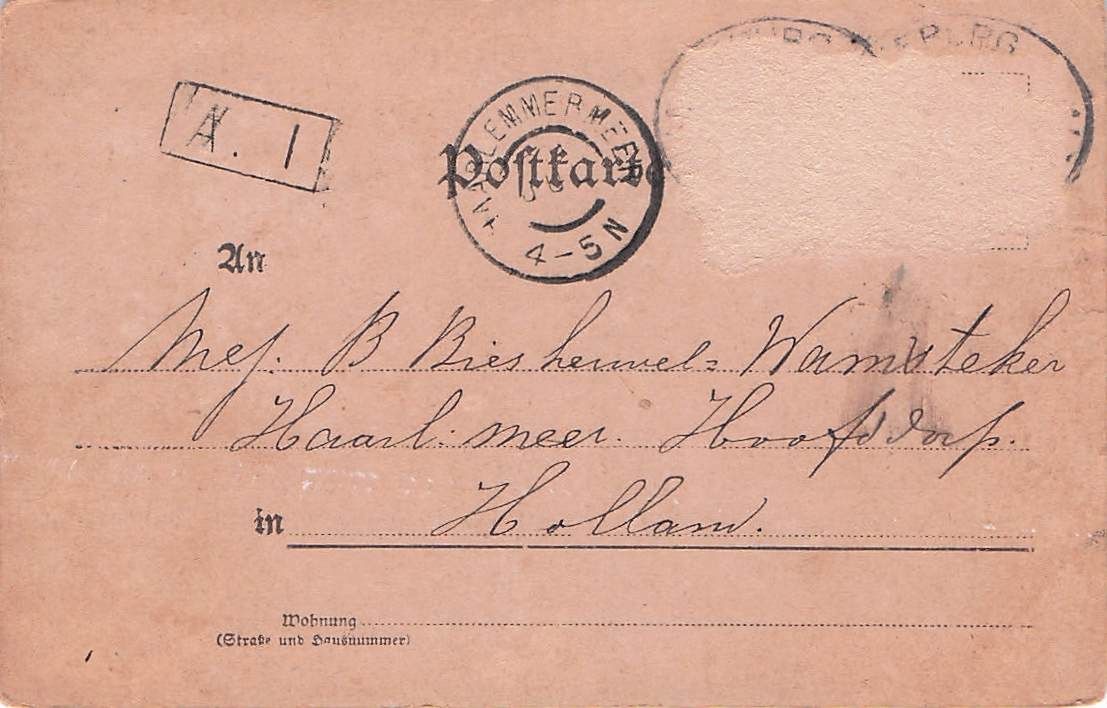 A. 1
HAARLEMMERMEER
4-5 N
Postkarte
An
Mej. B Biesheuvel=Wamsteker
Haarl. meer. Hoofddorp.
in Holland.
Wohnung
(Straße und Hausnummer)